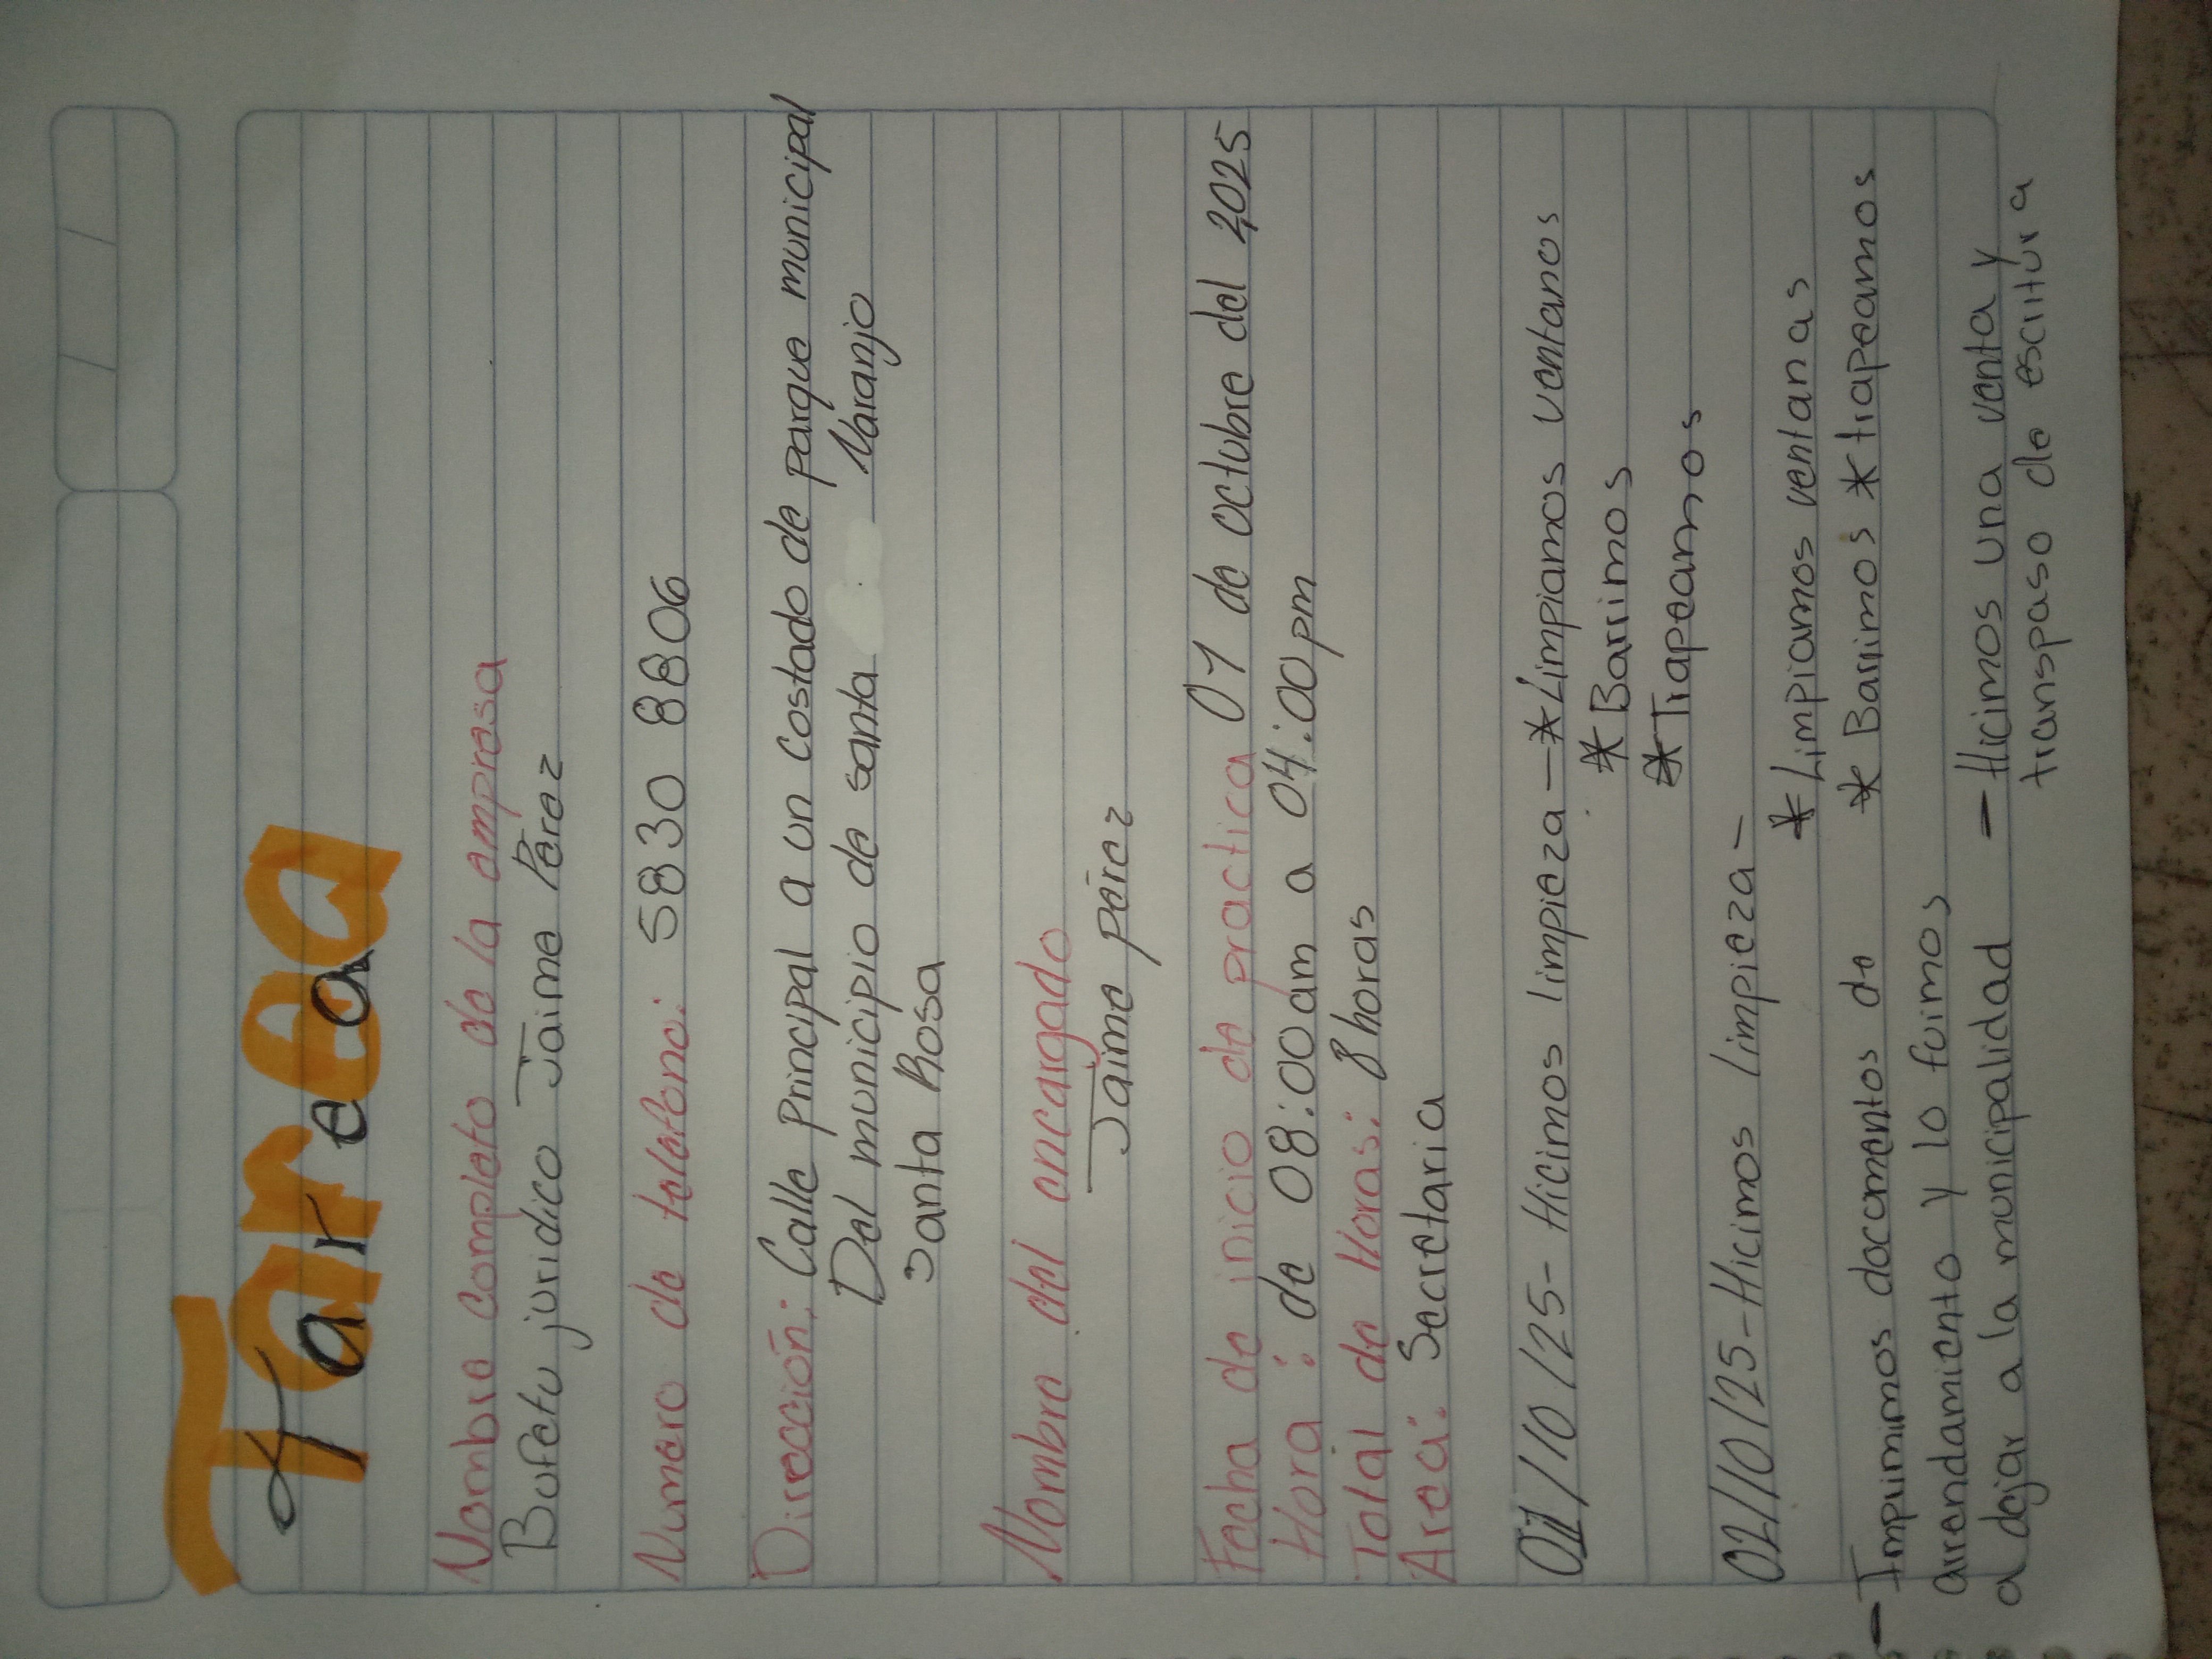 Tarea
Nombre completo de la empresa
Bufetu juridico Jaime Pérez
Numero de telefono: 5830 8806
Dirección: Calle Principal a un costado de parque municipal
Del municipio de santa Naranjo
Santa Rosa
Nombre del encargado
Jaime pérez
Fecha de inicio de practica 01 de octubre del 2025
Hora : de 08:00am a 04:00pm
Total de Horas: 8 horas
Area: Secretaria
01/10/25- Hicimos limpieza-*Limpiamos ventanos
* Barrimos
* Trapeamos
02/10/25-Hicimos limpieza-
* Limpiamos ventanas
- Imprimimos documentos de * Barrimos * trapeamos
arrendamiento y lo fuimos
a dejar a la municipalidad - Hicimos una venta y
transpaso de escritura